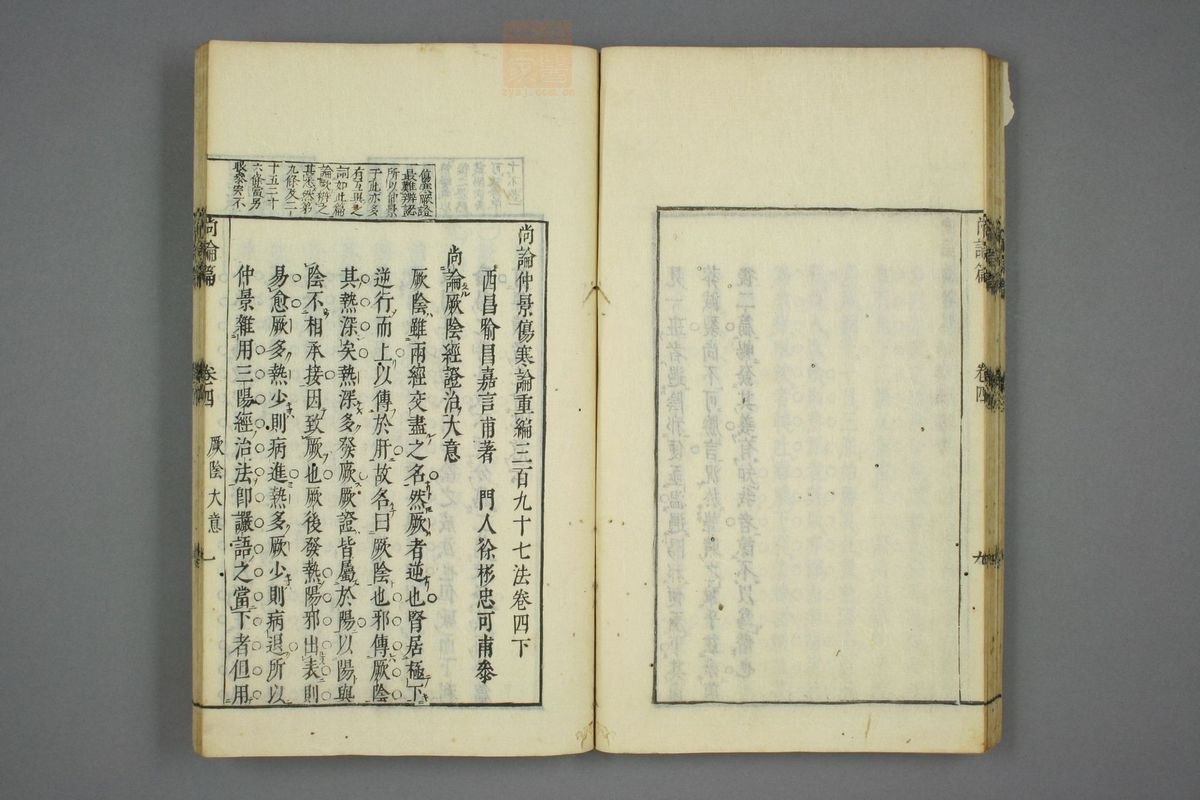 尚論篇
卷四
尚論仲景傷寒論重編三百九十七法卷四下
西昌喻昌嘉言甫著　門人徐彬忠可甫參
尚論厥陰經證治大意
厥陰雖兩經交盡之名然厥者逆也腎居極下
逆行而上以傳於肝故名曰厥陰也邪傳厥陰
其熱深矣熱深多發厥厥證皆屬於陽以陽與
陰不相承接因致厥也厥後發熱陽邪出表則
易愈厥多熱少則病進熱多厥少則病退所以
仲景雜用三陽經治法即讝語之當下者但用
傷寒厥證
最難辨認
所以仲景
于此亦多
有互異之
詞如此篇
論厥辨之
其悉然第
九條及二十
十五二十
六條當另
尚論篇
卷四
厥陰大意
一